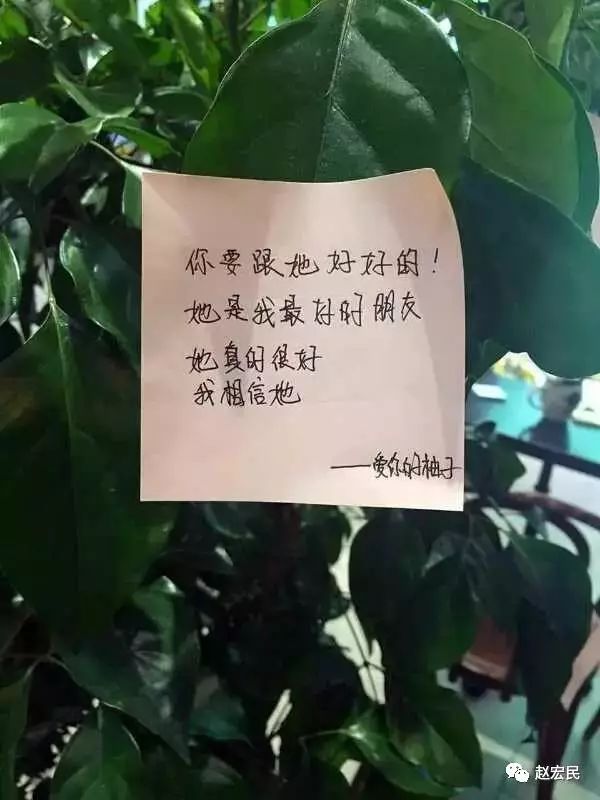 你要跟她好好的！
她是我最好的朋友
她真的很好
我相信她
——爱你的柚子
赵宏民